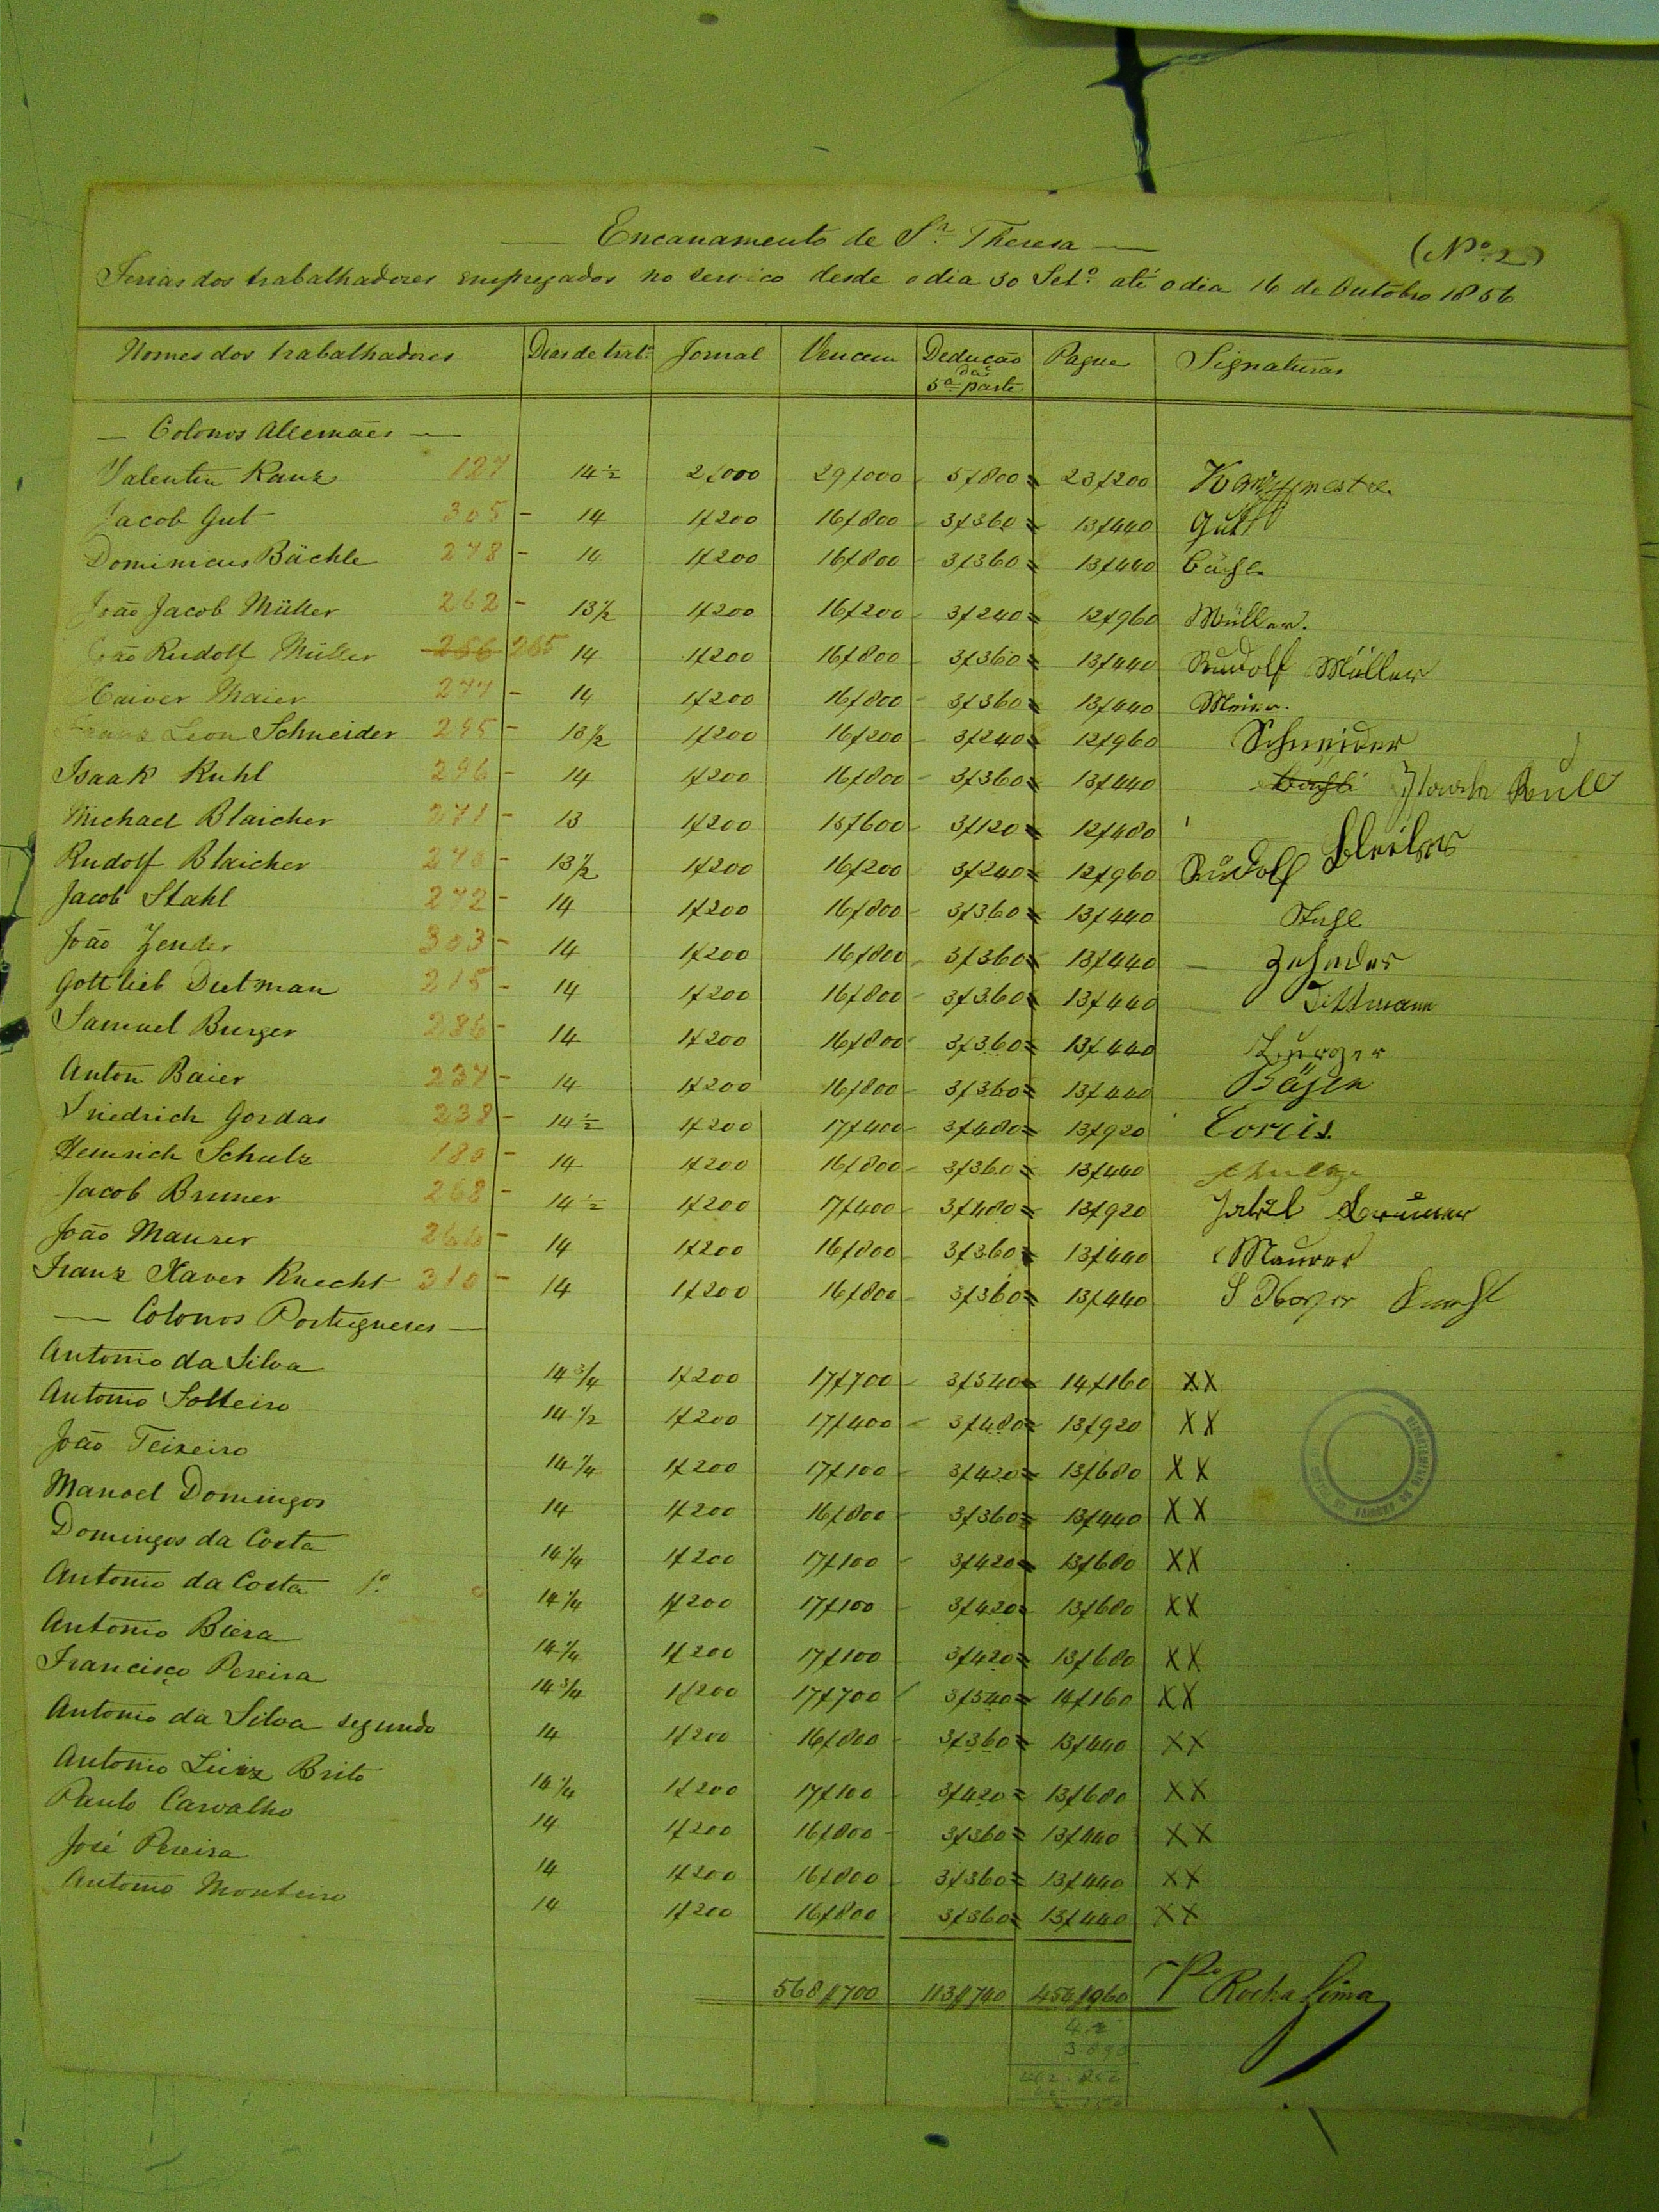 Encanamento de Sta. Theresa
(No. 2)
Ferias dos trabalhadores empregados no servico desde o dia 30 Seto. até o dia 16 de Outobro 1856
Nomes dos trabalhadores Dias de trabo. Jornal Vencem Deducão da 5a parte Pague Signaturas
— Colonos Allemães —
Valentin Kanz 127 14½ 2$000 29$000 - 5$800 = 23$200
Jacob Gut 305 - 14 1$200 16$800 - 3$360 = 13$440 Gutt
Dominicus Bächle 278 - 14 1$200 16$800 - 3$360 = 13$440
João Jacob Müller 262 - 13½ 1$200 16$200 - 3$240 = 12$960 Müller.
João Rudolf Müller 266 265 14 1$200 16$800 - 3$360 = 13$440 Rudolf Müller
Xaiver Maier 277 - 14 1$200 16$800 - 3$360 = 13$440 Meier.
Franz Leon Schneider 295 - 13½ 1$200 16$200 - 3$240 = 12$960 Schneider
Isaak Kuhl 296 - 14 1$200 16$800 - 3$360 = 13$440
Michael Blaicher 271 - 13 1$200 15$600 - 3$120 = 12$480
Rudolf Blaicher 270 - 13½ 1$200 16$200 - 3$240 = 12$960 Rudolf
Jacob Stahl 272 - 14 1$200 16$800 - 3$360 = 13$440 Stahl
João Zender 303 - 14 1$200 16$800 - 3$360 = 13$440 — Zehnder
Gottlieb Dietman 215 - 14 1$200 16$800 - 3$360 = 13$440 Dittmann
Samuel Burger 236 - 14 1$200 16$800 - 3$360 = 13$440 Burger
Anton Baier 237 - 14 1$200 16$800 - 3$360 = 13$440
Friedrich Gordas 238 - 14½ 1$200 17$400 - 3$480 = 13$920
Heinrich Schulz 180 - 14 1$200 16$800 - 3$360 = 13$440
Jacob Bruner 268 - 14½ 1$200 17$400 - 3$480 = 13$920
João Maurer 14 1$200 16$800 - 3$360 = 13$440 Maurer
Franz Xaver Knecht 310 - 14 1$200 16$800 - 3$360 = 13$440
— Colonos Portugueses —
Antonio da Silva 14 3/4 1$200 17$700 - 3$540 = 14$160 XX
Antonio Solteiro 14 1/2 1$200 17$400 - 3$480 = 13$920 XX
João Teixeiro 14 1/4 1$200 17$100 - 3$420 = 13$680 XX
Manoel Domingos 14 1$200 16$800 - 3$360 = 13$440 XX
Domingos da Costa 14 1/4 1$200 17$100 - 3$420 = 13$680 XX
Antonio da Costa 1o. 14 1/4 1$200 17$100 - 3$420 = 13$680 XX
Antonio Biera 14 1/4 1$200 17$100 - 3$420 = 13$680 XX
Francisco Pereira 14 3/4 1$200 17$700 3$540 = 14$160 XX
Antonio da Silva segundo 14 1$200 16$800 - 3$360 = 13$440 XX
Antonio Luiz Brito 14 1/4 1$200 17$100 - 3$420 = 13$680 XX
Paulo Carvalho 14 1$200 16$800 - 3$360 = 13$440 XX
José Pereira 14 1$200 16$800 - 3$360 = 13$440 XX
Antonio Monteiro 14 1$200 16$800 3$360 = 13$440 XX
568$700 113$740 454$960 Rocha Lima